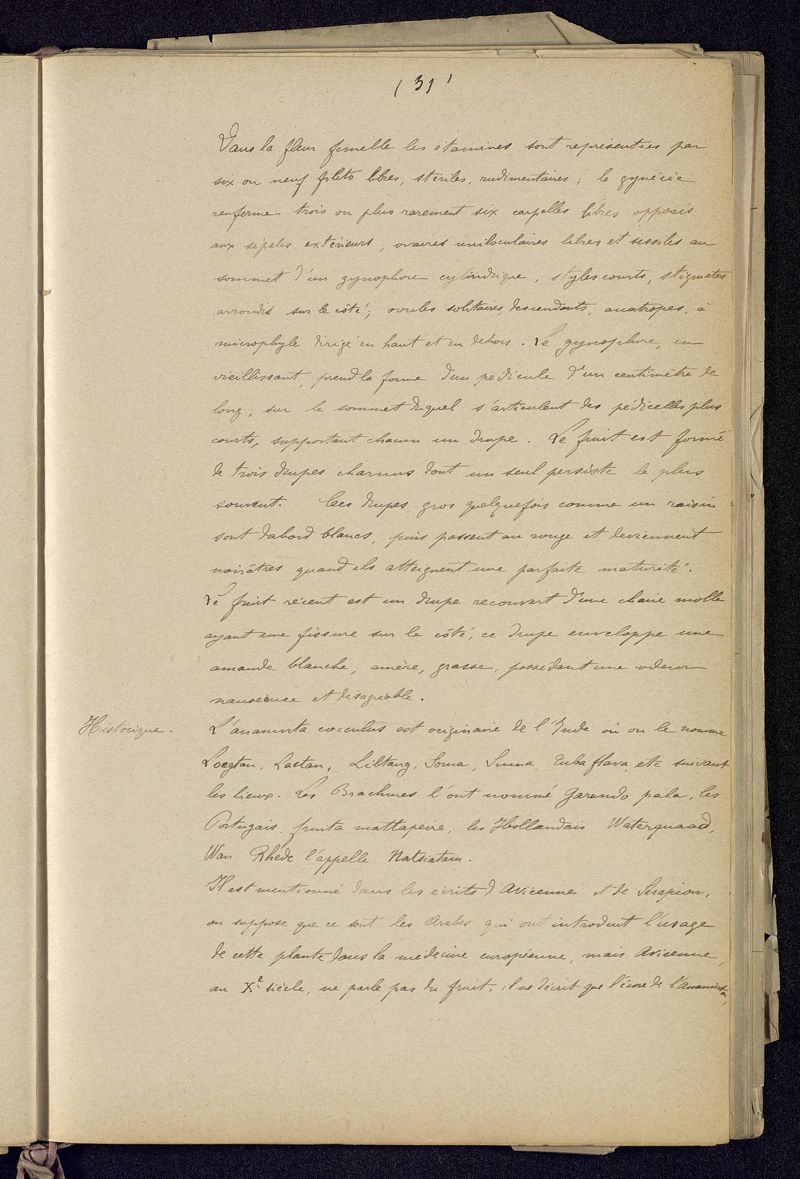 (31)
Dans la fleur femelle les étamines sont représentées par
six ou neuf filets libres, stériles, rudimentaires ; le gynécée
renferme trois ou plus rarement six carpelles libres opposés
aux sépales extérieurs ; ovaires uniloculaires libres et sessiles au
sommet d'un gynophore cylindrique, styles courts, stigmates
arrondis sur le côté ; ovules solitaires, descendants, anatropes, à
microphyle dirigé en haut et en dehors. Le gynophore, en
vieillissant, prend la forme d'un pédicule d'un centimètre de
long, sur le sommet duquel s'articulent des pédicelles plus
courts, supportant chacun un drupe. Le fruit est formé
de trois drupes charnus dont un seul persiste le plus
souvent. Ces drupes, gros quelquefois comme un raisin
sont d'abord blancs, puis passent au rouge et deviennent
noirâtres quand ils atteignent une parfaite maturité.
Le fruit récent est un drupe recouvert d'une chair molle
ayant une fissure sur le côté, ce drupe enveloppe une
amande blanche, amère, grasse, possédant une odeur
nauséeuse et désagréable.
Historique.
L'anamirta cocculus est originaire de l'Inde où on le nomme
Loegtan, Laetan, Libtang, Soma, Suma, Tuba flava, etc suivant
les lieux. Les Brachmes l'ont nommé Garundo pala, les
Portugais fruita mattapeire, les Hollandais Waternaad,
Wan Rhéde l'appelle Natsiatam.
Il est mentionné dans les écrits d'Avicenne et de Sérapion,
on suppose que ce sont les Arabes qui ont introduit l'usage
de cette plante dans la médecine européenne, mais Avicenne,
au Xe siècle, ne parle pas du fruit, il ne décrit que l'écorce de l'Anamirta,